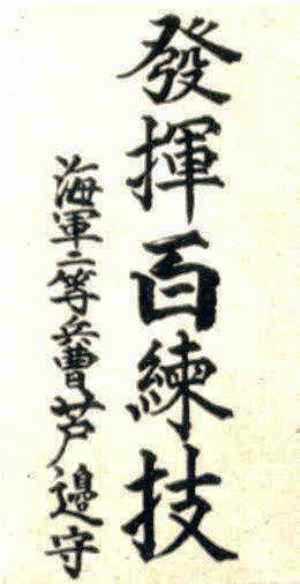 發揮百練技
海軍二等兵曹芦邉守